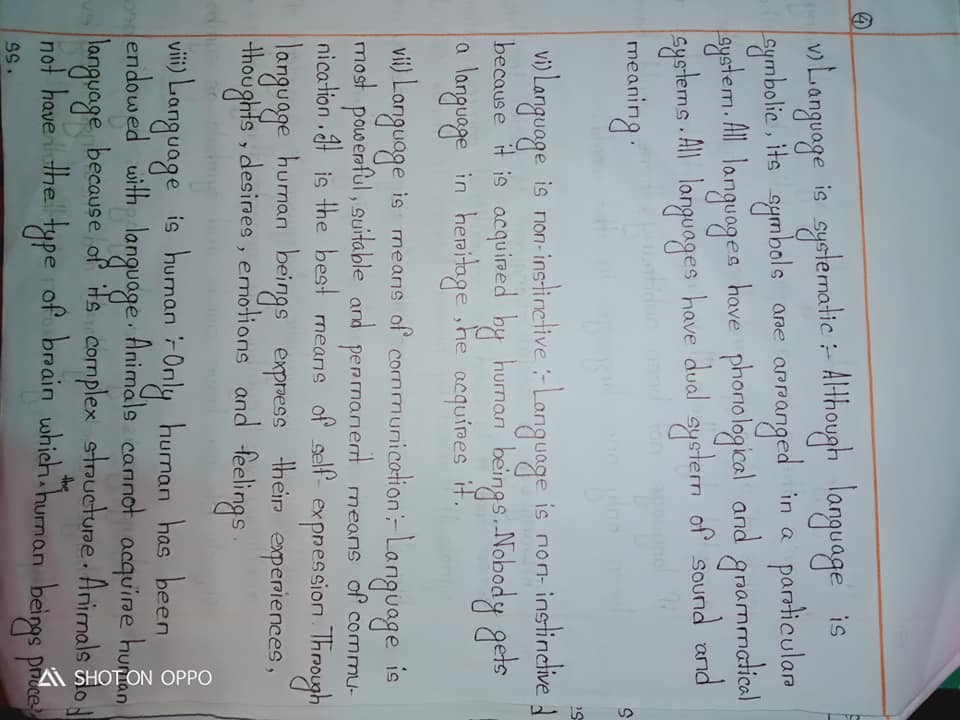 ④
v) Language is systematic :- Although language is
symbolic, its symbols are arranged in a particular
system. All languages have phonological and grammatical
systems. All languages have dual system of sound and
meaning.
vi) Language is non-instinctive :- Language is non-instinctive
because it is acquired by human beings. Nobody gets
a language in heritage, he acquires it.
vii) Language is means of communication :- Language is
most powerful, suitable and permanent means of commu-
nication. It is the best means of self-expression. Through
language human beings express their experiences,
thoughts, desires, emotions and feelings.
viii) Language is human :- Only human has been
endowed with language. Animals cannot acquire human
language because of its complex structure. Animals do
not have the type of brain which the human beings proce-
ss.
SHOT ON OPPO